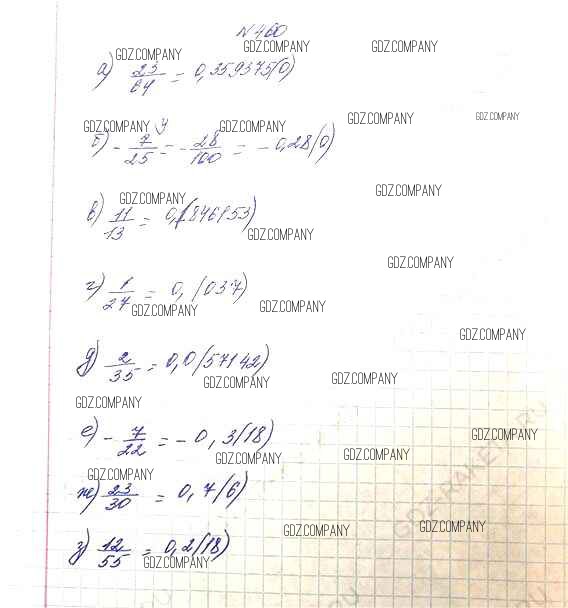 №460
GDZ.COMPANY GDZ.COMPANY GDZ.COMPANY
а) 23/64 = 0,359375(0)
GDZ.COMPANY 4 GDZ.COMPANY GDZ.COMPANY GDZ.COMPANY
б) - 7/25 = - 28/100 = - 0,28(0)
GDZ.COMPANY GDZ.COMPANY
в) 11/13 = 0,(846153)
GDZ.COMPANY
GDZ.COMPANY
г) 1/27 = 0,(037)
GDZ.COMPANY GDZ.COMPANY
GDZ.COMPANY
д) 2/35 = 0,0(57142)
GDZ.COMPANY GDZ.COMPANY
GDZ.COMPANY
е) - 7/22 = - 0,3(18)
GDZ.COMPANY
GDZ.COMPANY GDZ.COMPANY
GDZ.COMPANY
ж) 23/30 = 0,7(6)
GDZ.COMPANY GDZ.COMPANY
з) 12/55 = 0,2(18)
GDZ.COMPANY